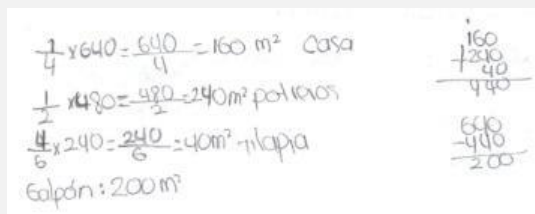 1/4 x 640 = 640/4 = 160 m² casa
1/2 x 480 = 480/2 = 240 m² potreros
1/6 x 240 = 240/6 = 40 m² tilapia
Galpón: 200 m²
160
+ 240
40
440
640
- 440
200